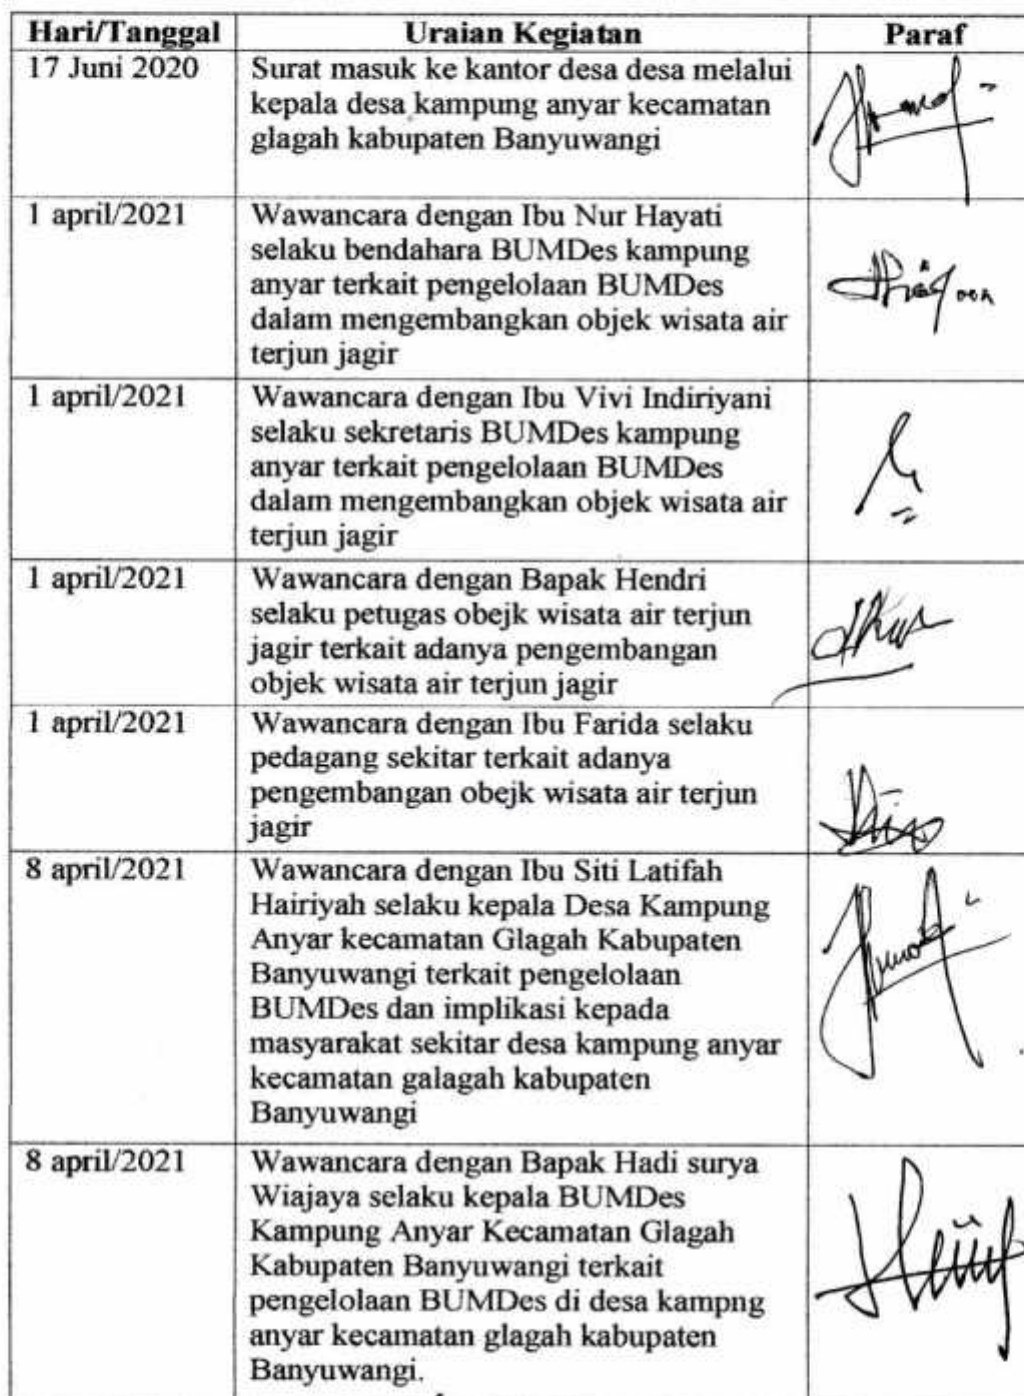 Hari/Tanggal Uraian Kegiatan Paraf
17 Juni 2020 Surat masuk ke kantor desa desa melalui
kepala desa kampung anyar kecamatan
glagah kabupaten Banyuwangi
1 april/2021 Wawancara dengan Ibu Nur Hayati
selaku bendahara BUMDes kampung
anyar terkait pengelolaan BUMDes
dalam mengembangkan objek wisata air
terjun jagir
1 april/2021 Wawancara dengan Ibu Vivi Indiriyani
selaku sekretaris BUMDes kampung
anyar terkait pengelolaan BUMDes
dalam mengembangkan objek wisata air
terjun jagir
1 april/2021 Wawancara dengan Bapak Hendri
selaku petugas obejk wisata air terjun
jagir terkait adanya pengembangan
objek wisata air terjun jagir
1 april/2021 Wawancara dengan Ibu Farida selaku
pedagang sekitar terkait adanya
pengembangan obejk wisata air terjun
jagir
8 april/2021 Wawancara dengan Ibu Siti Latifah
Hairiyah selaku kepala Desa Kampung
Anyar kecamatan Glagah Kabupaten
Banyuwangi terkait pengelolaan
BUMDes dan implikasi kepada
masyarakat sekitar desa kampung anyar
kecamatan galagah kabupaten
Banyuwangi
8 april/2021 Wawancara dengan Bapak Hadi surya
Wiajaya selaku kepala BUMDes
Kampung Anyar Kecamatan Glagah
Kabupaten Banyuwangi terkait
pengelolaan BUMDes di desa kampng
anyar kecamatan glagah kabupaten
Banyuwangi.